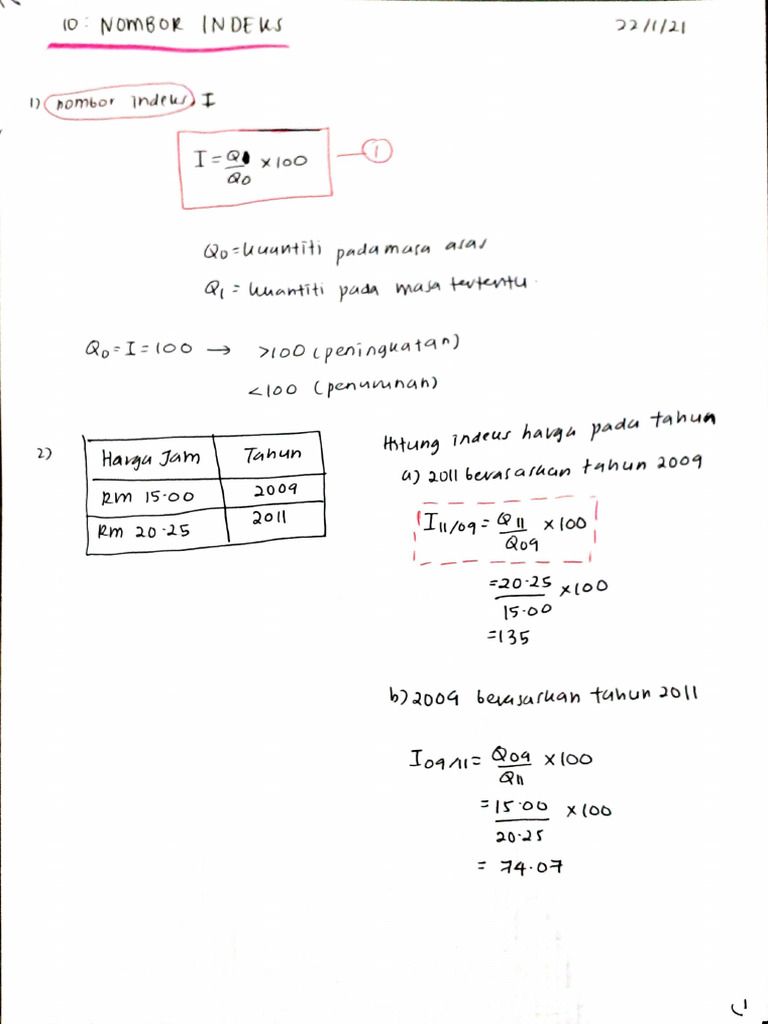 10: NOMBOR INDEKS
22/1/21
1) nombor indeks, I
I = Q1/Q0 × 100 — 1
Q0 = kuantiti pada masa asas
Q1 = kuantiti pada masa tertentu.
Q0 = I = 100 → >100 (peningkatan)
<100 (penurunan)
2)
Harga Jam | Tahun
RM 15.00 | 2009
RM 20.25 | 2011
Hitung indeks harga pada tahun
a) 2011 berasaskan tahun 2009
I11/09 = Q11/Q09 × 100
= 20.25/15.00 × 100
= 135
b) 2009 berasaskan tahun 2011
I09/11 = Q09/Q11 × 100
= 15.00/20.25 × 100
= 74.07